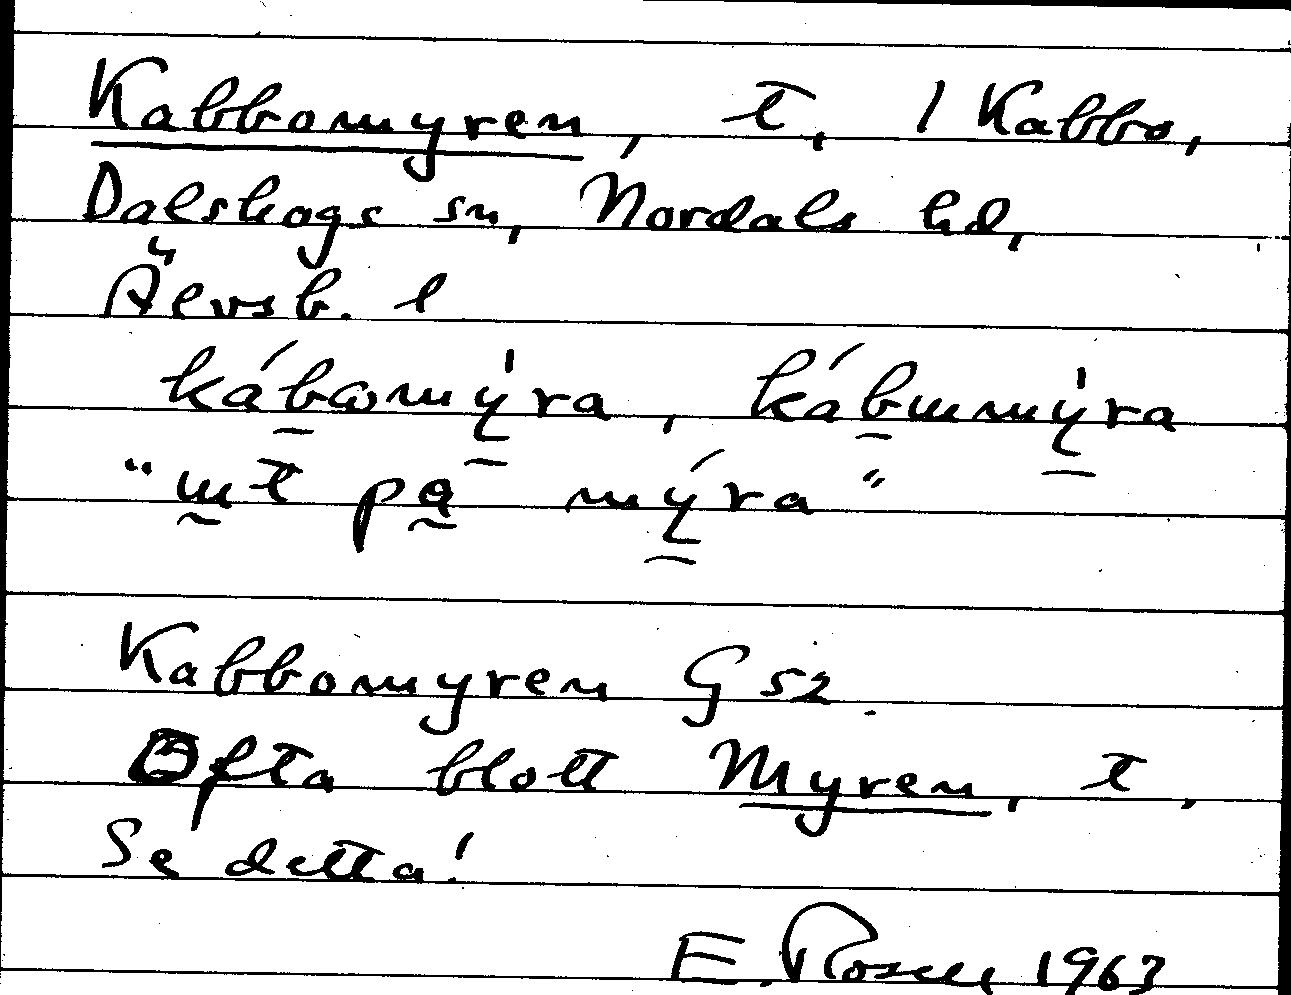 Kabbomyren, t, 1 Kabbo,
Dalskogs sn, Nordals hd,
Älvsb. l
kábωmy̠̍ra, kábɯmy̠̍ra
"ɯt pa mýra"
Kabbomyren G 52
Ofta blott Myren, t.
Se detta!
E. Rosell 1963